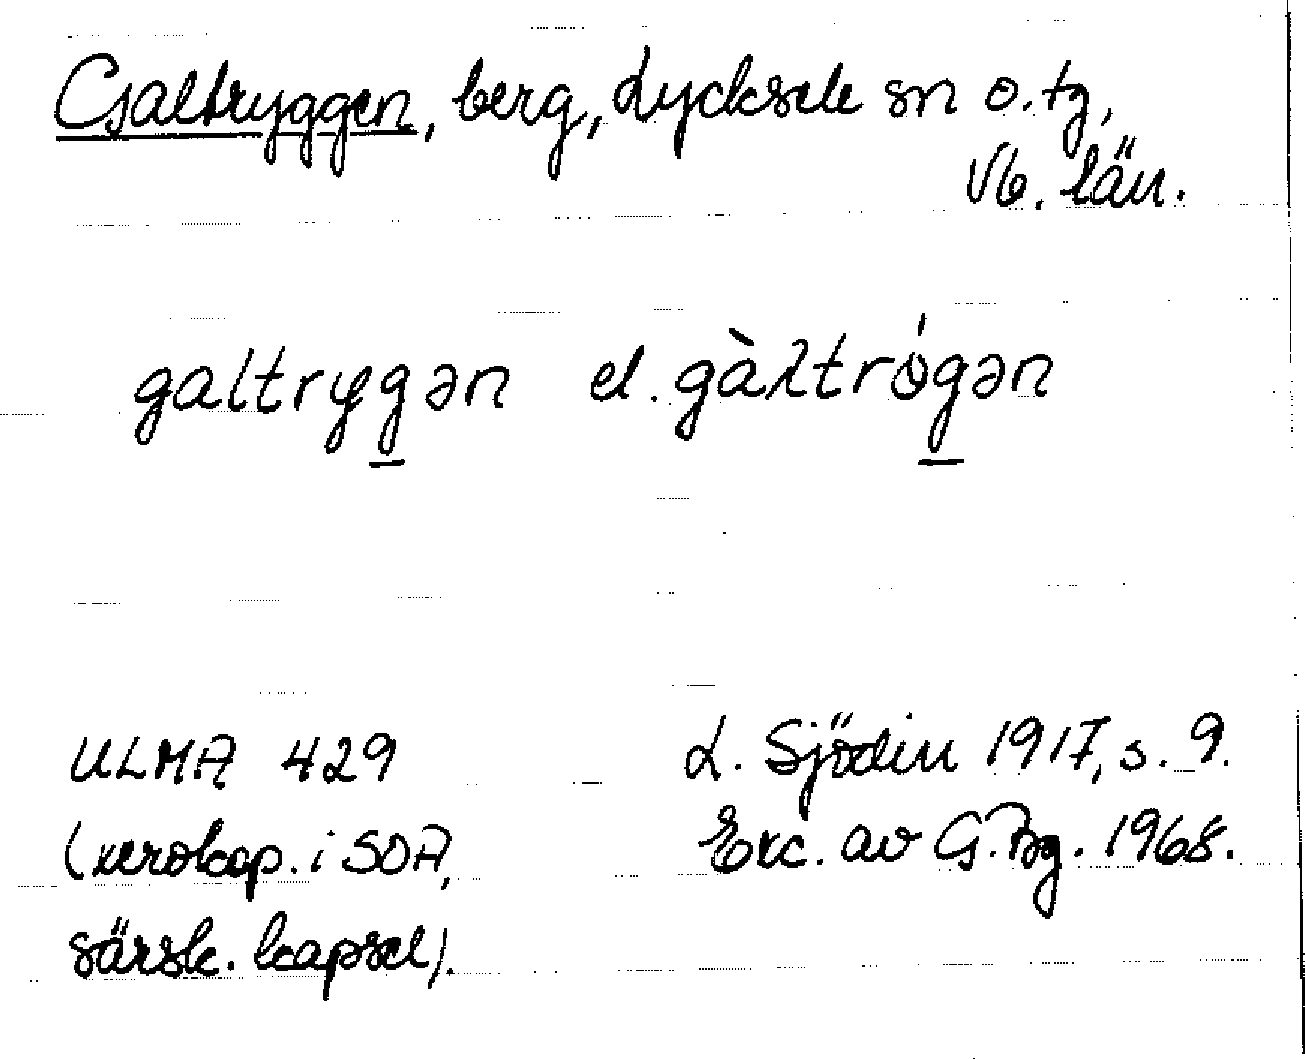 Galtryggen, berg, Lycksele sn o. tg,
Vb. län.
galtryg̱ən el. gàλtrǿg̱ən
ULMA 429
(xerokop. i SOA,
särsk. kapsel).
L. Sjödin 1917, s. 9.
Exc. av G. Bg. 1968.